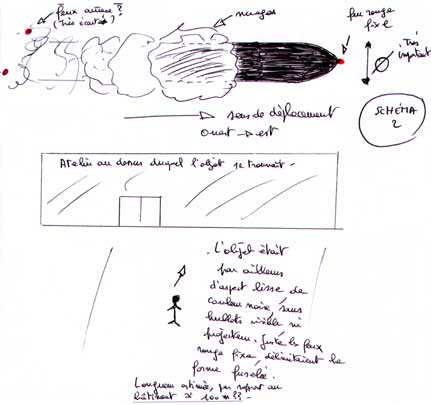 feux arrière ?
(Très écartés ?)
nuages
feu rouge
fixe
Très
important
sens de déplacement
ouest → est
SCHÉMA
2
Atelier au dessus duquel l'objet se trouvait -
L'objet était
par ailleurs
d'aspect lisse de
couleur noire, sans
hublots visible ni
projecteur. Juste les feux
rouge fixe, délimitaient la
forme fuselée.
Longueur estimée, par rapport au
bâtiment ≈ 100 m ?? -